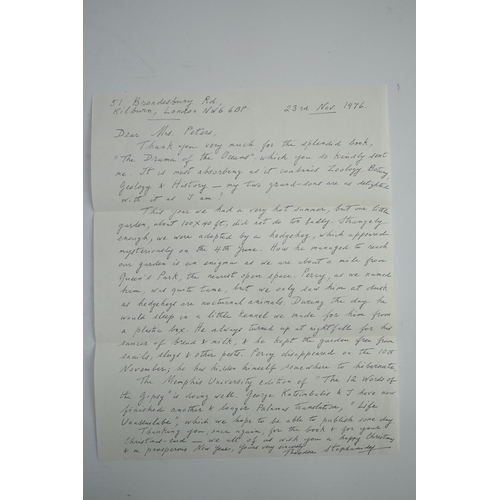 51 Brondesbury Rd,
Kilburn, London NW6 6BP
23rd Nov. 1976.
Dear Mrs. Peters,
Thank you very much for the splendid book,
"The Drama of the Oceans", which you so kindly sent
me. It is most absorbing as it combines Zoology, Botany,
Geology & History — my two grand-sons are as delighted
with it as I am!
This year we had a very hot summer, but our little
garden, about 100 x 40 ft, did not do too badly. Strangely
enough, we were adopted by a hedgehog, which appeared
mysteriously on the 4th June. How he managed to reach
our garden is an enigma as we are about a mile from
Queen's Park, the nearest open space. Percy, as we named
him, was quite tame, but we only saw him at dusk
as hedgehogs are nocturnal animals. During the day he
would sleep in a little kennel we made for him from
a plastic box. He always turned up at nightfall for his
saucer of bread & milk, & he kept the garden free from
snails, slugs & other pests. Percy disappeared on the 10th
November; he has hidden himself somewhere to hibernate.
The Memphis University edition of "The 12 Words of
the Gipsy" is doing well. George Katsimbalis & I have now
finished another & longer Palamas translation, "Life
", which we hope to be able to publish some day.
Thanking you, once again, for the book & for your
Christmas card — we all of us wish you a happy Christmas
& a prosperous New Year, Yours very sincerely
Theodore Stephanides